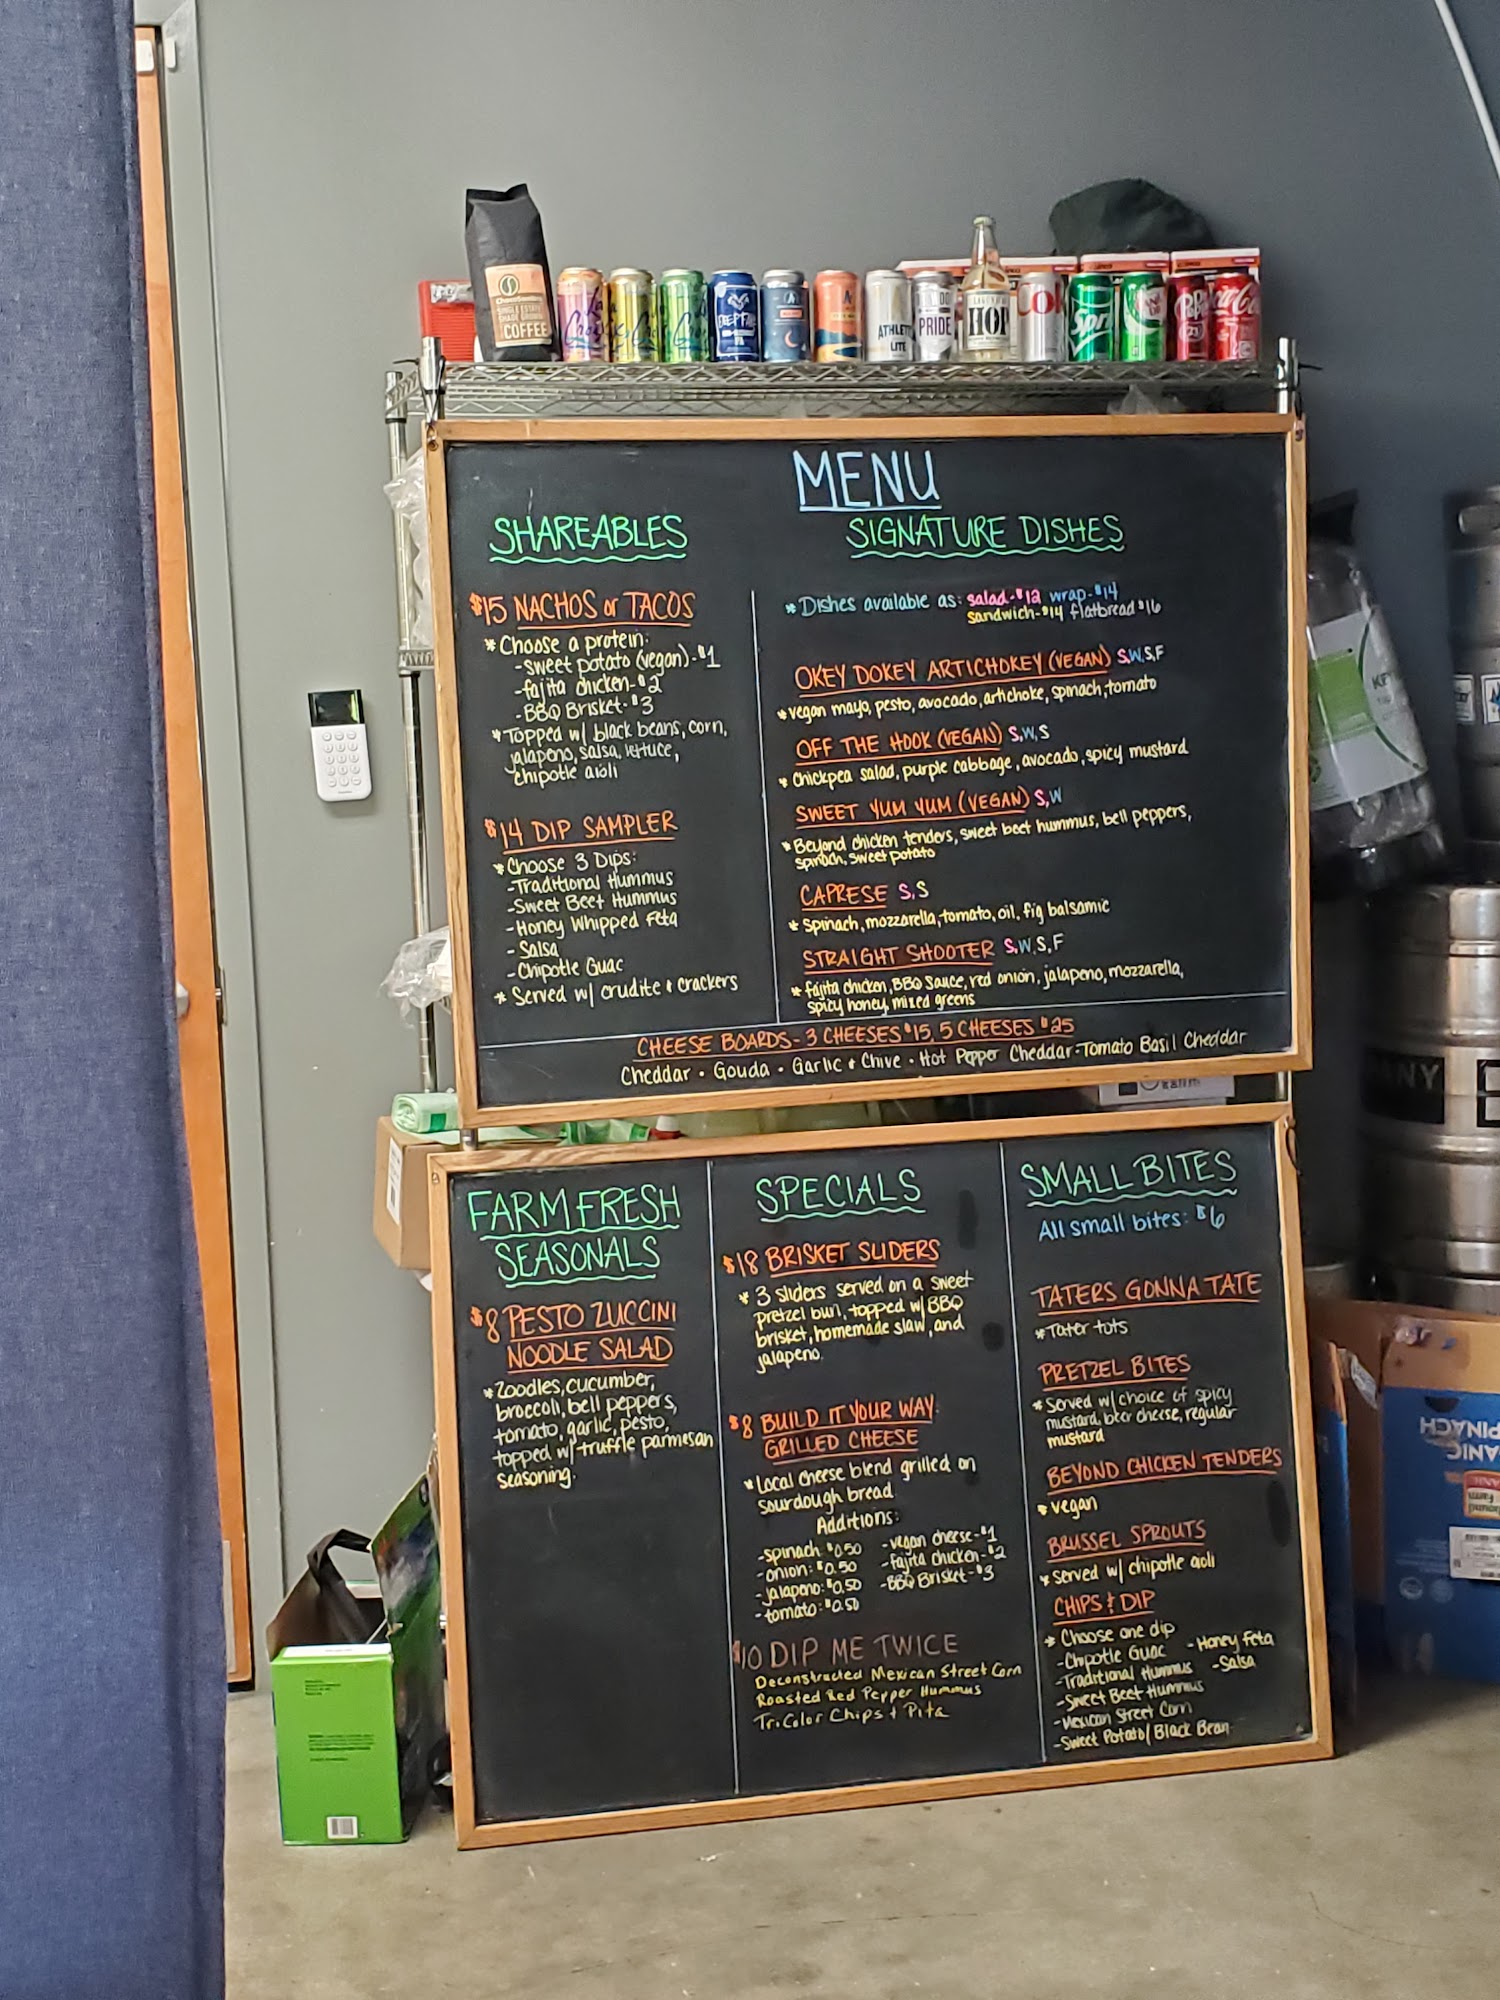 ChocoSombra
SINGLE ESTATE
SHADE GROWN
COFFEE
La
Croix
ATHLETIC
LITE
PRIDE
HOP
Coke
Sprite
Coca-Cola
MENU
SHAREABLES
$15 NACHOS or TACOS
* Choose a protein:
- sweet potato (vegan) - $1
- fajita chicken - $2
- BBQ Brisket - $3
* Topped w/ black beans, corn,
jalapeno, salsa, lettuce,
chipotle aioli
$14 DIP SAMPLER
* Choose 3 Dips:
- Traditional Hummus
- Sweet Beet Hummus
- Honey Whipped Feta
- Salsa
- Chipotle Guac
* Served w/ crudite & crackers
SIGNATURE DISHES
* Dishes available as: salad - $12 wrap - $14
sandwich - $14 flatbread $16
OKEY DOKEY ARTICHOKEY (VEGAN) S,W,S,F
* vegan mayo, pesto, avocado, artichoke, spinach, tomato
OFF THE HOOK (VEGAN) S,W,S
* Chickpea salad, purple cabbage, avocado, spicy mustard
SWEET YUM YUM (VEGAN) S,W
* Beyond chicken tenders, sweet beet hummus, bell peppers,
spinach, sweet potato
CAPRESE S,S
* Spinach, mozzarella, tomato, oil, fig balsamic
STRAIGHT SHOOTER S,W,S,F
* fajita chicken, BBQ sauce, red onion, jalapeno, mozzarella,
spicy honey, mixed greens
CHEESE BOARDS - 3 CHEESES $15, 5 CHEESES $25
Cheddar • Gouda • Garlic & Chive • Hot Pepper Cheddar • Tomato Basil Cheddar
FARM FRESH
SEASONALS
$8 PESTO ZUCCINI
NOODLE SALAD
* Zoodles, cucumber,
broccoli, bell peppers,
tomato, garlic, pesto,
topped w/ truffle parmesan
seasoning.
SPECIALS
$18 BRISKET SLIDERS
* 3 sliders served on a sweet
pretzel bun, topped w/ BBQ
brisket, homemade slaw, and
jalapeno.
$8 BUILD IT YOUR WAY:
GRILLED CHEESE
* Local cheese blend grilled on
sourdough bread
Additions:
- spinach: $0.50 - vegan cheese - $1
- onion: $0.50 - fajita chicken - $2
- jalapeno: $0.50 - BBQ Brisket - $3
- tomato: $0.50
$10 DIP ME TWICE
Deconstructed Mexican Street Corn
Roasted Red Pepper Hummus
Tri Color Chips + Pita
SMALL BITES
All small bites: $6
TATERS GONNA TATE
* Tater tots
PRETZEL BITES
* Served w/ choice of spicy
mustard, beer cheese, regular
mustard
BEYOND CHICKEN TENDERS
* vegan
BRUSSEL SPROUTS
* Served w/ chipotle aioli
CHIPS & DIP
* Choose one dip
- Chipotle Guac - Honey Feta
- Traditional Hummus - Salsa
- Sweet Beet Hummus
- Mexican Street Corn
- Sweet Potato/Black Bean